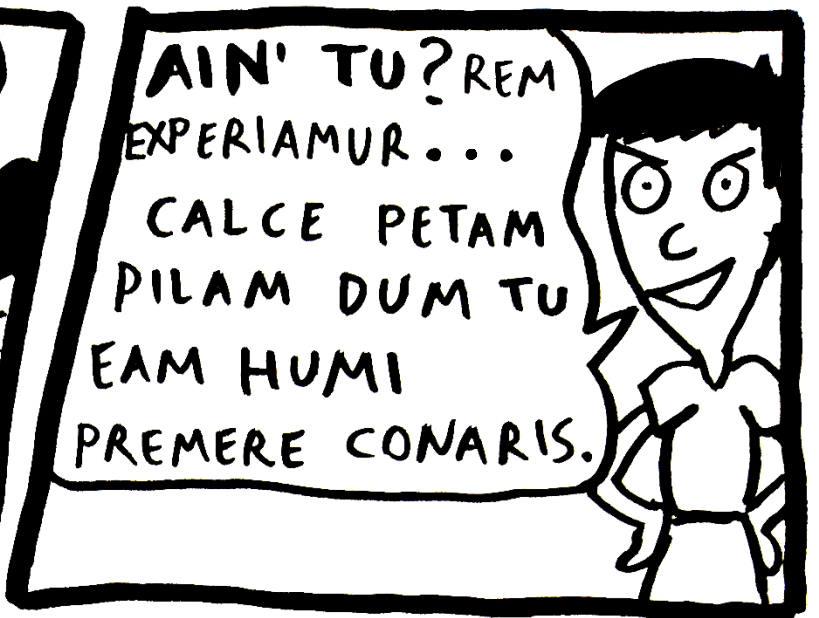 AIN' TU? REM
EXPERIAMUR...
CALCE PETAM
PILAM DUM TU
EAM HUMI
PREMERE CONARIS.